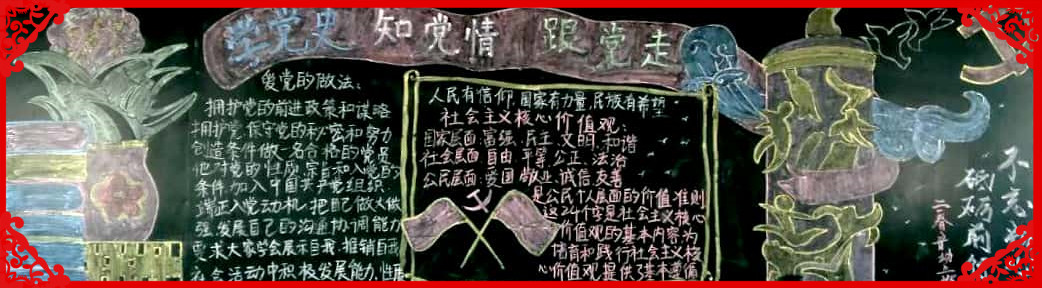 学党史 知党情 跟党走
爱党的做法:
拥护党的前进政策和谋略
拥护党,保守党的秘密和努力
创造条件做一名合格的党员
他对党的性质,宗旨和入党的
条件,加入中国共产党组织
端正入党动机,把自己做大做
强,发展自己的沟通协调能力
要求大家学会展示自我,推销自我
在会活动中积极发展能力,性质
人民有信仰,国家有力量,民族有希望
社会主义核心价值观:
国家层面:富强,民主,文明,和谐
社会层面 自由 平等 公正 法治
公民层面:爱国 敬业 诚信 友善
是公民个人层面的价值准则
这24个字是社会主义核心
价值观的基本内容为
培育和践行社会主义核
心价值观提供了基本遵循
不忘
砥砺前行